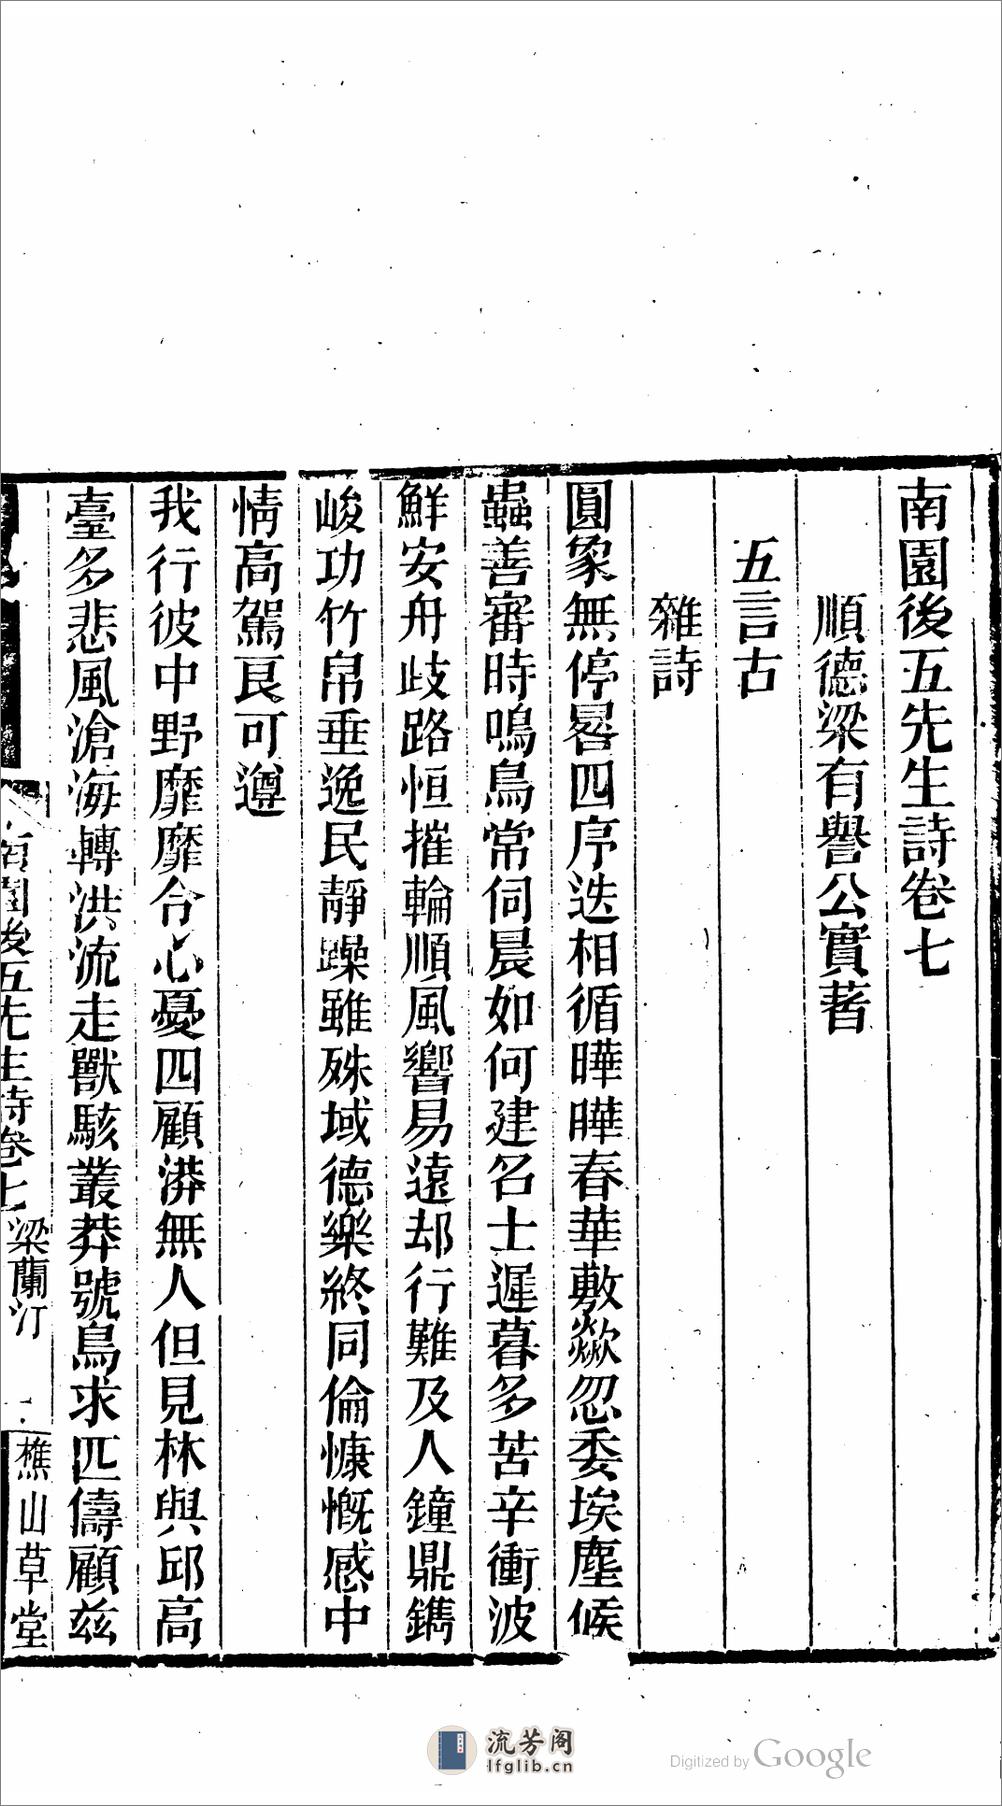 南園後五先生詩卷七
順德梁有譽公實著
五言古
雜詩
圓象無停晷四序迭相循曄曄春華敷歘忽委埃塵候
蟲善審時鳴鳥常伺晨如何建名士遲暮多苦辛衝波
鮮安舟歧路恒摧輪順風響易遠却行難及人鐘鼎鐫
峻功竹帛垂逸民靜躁雖殊域德樂終同倫慷慨感中
情高駕良可遵
我行彼中野靡靡令心憂四顧漭無人但見林與邱高
臺多悲風滄海轉洪流走獸駭叢莽號鳥求匹儔顧茲
南園後五先生詩卷七 梁蘭汀 一 樵山草堂
流芳阁
lfglib.cn
Digitized by Google